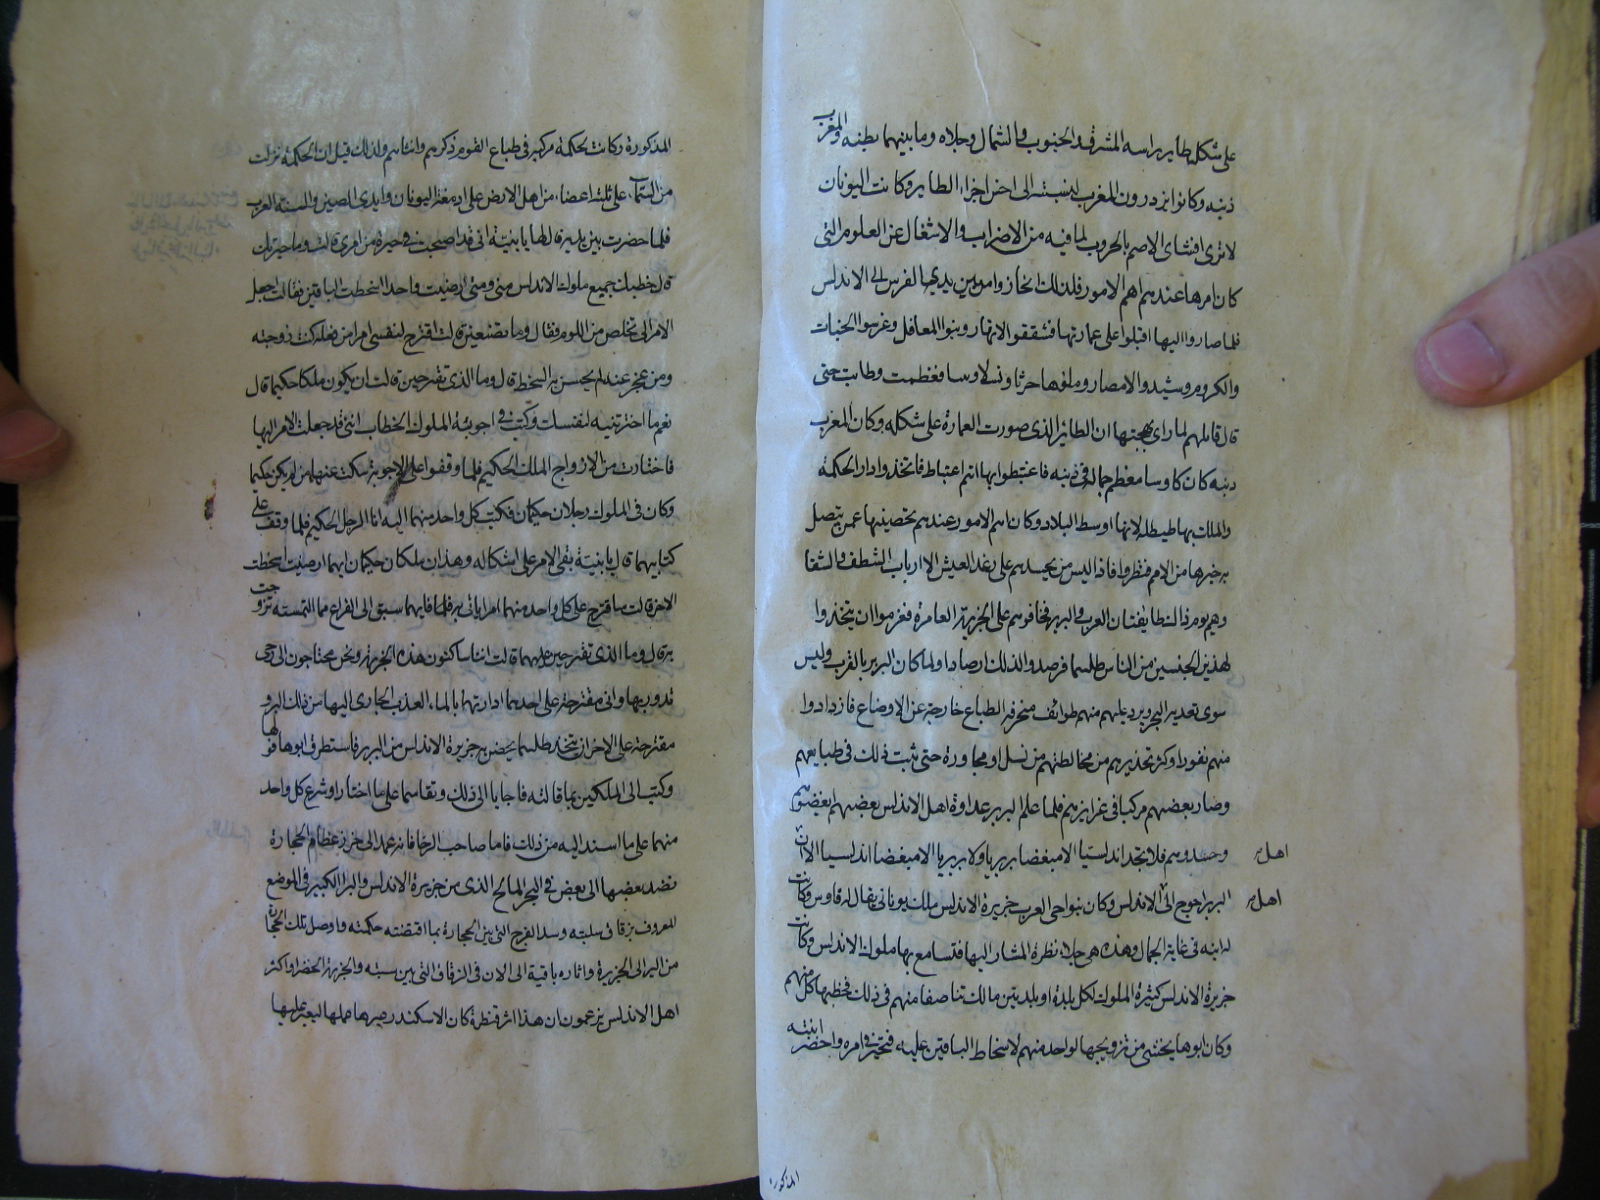 على شكل طاير راسه المشرق والجنوب والشمال رجلاه وما بينهما بطنه والمغرب
ذنبه وكانوا يزدرون المغرب لنسبته الى اخس اجزاء الطاير وكانت اليونان
لا ترى افشاى الامم بالحروب لما فيه من الاضراب والاشتغال عن العلوم التى
كان امرها عندهم اهم الامور فلذلك انحازوا من بين يدى الفرس الى الاندلس
فلما صاروا اليها اقبلوا على عمارتها فشققوا الانهار وبنوا المعاقل وغرسوا الجنات
والكروم وشيدوا الامصار وملؤها حرثا ونسلا وسا فعظمت وطابت حتى
قال قايلهم لما راى بهجتها ان الطائر الذى صورت العمارة على شكله وكان المغرب
ذنبه كان طاوسا معظم جماله فى ذنبه فاغتبطوا بها اتم اغتباط فاتخذوا دار الحكمة
والملك بها طيطله لانها اوسط البلاد وكان اهم الامور عندهم تحصينها عمن يتصل
به خبرها من الامم فنظروا فاذا ليس من يحسدهم على رغد العيش الا ارباب الشظف والشقا
وهم يوم ذاك طايفتان العرب والبربر فخافوهم على الجزيرة العامرة فعزموا ان يتخذوا
لهذين الجنسين من الناس طلسما فرصدوا لذلك ارصادا ولما كان البربر بالقرب وليس
سوى تعدية البحر ويرد عليهم منهم طوائف منحرفة الطباع خارجة عن الاوضاع فازدادوا
منهم نفورا وكثر تحذيرهم من مخالطتهم من نسل او مجاورة حتى ثبت ذلك فى طبايعهم
وصار بعضهم مركبا فى غرايزهم فلما علم البربر عداوة اهل الاندلس بغضهم ابغضوهم
وحسدوهم فلا تجد اندلسيا الا مبغضا بربريا ولا بربريا الا مبغضا اندلسيا الا ان اهل
البربر احوج الى اهل الاندلس وكان بنواحى العرب جزيرة الاندلس ملك يونانى يقال له قاوس وكانت
له ابنه فى غاية الجمال وهذه هى نظرة المشار اليها فتسامع بها ملوك الاندلس وكانت
جزيرة الاندلس كثيرة الملوك لكل بلدة او بلدتين مالك تناصفا منهم فى ذلك فخطبها كل منهم
وكان ابوها يخشى من تزويجها لواحد منهم لاسخاط الباقين عليه فتحير فى امره واحضر ابنته
المذكورة
المذكورة وكانت الحكمة مركبة فى طباع القوم ذكرهم وانثاهم ولذلك قيل ان الحكمة نزلت
من السماء على ثلثة اعضاء من اهل الارض على ادمغة اليونان وايدى الصين والسنة العرب
فلما حضرت بين يديه قال لها يا بنية انى قد اصبحت فى حيرة من امرى قالت وما حيرتك
قال خطبك جميع ملوك الاندلس منى ومتى ارضيت واحدا اسخطت الباقين فقالت اجعل
الامر الى تخلص من اللوم فقال وما تصنعين قالت اقترح لنفسى امرا من فعله كنت زوجته
ومن عجز عنه لم يحسن به السخط قال وما الذى تقترحين قالت ان يكون ملكا حكيما قال
نعم ما اخترتيه لنفسك وكتب فى اجوبة الملوك الخطاب اننى قد جعلت الامر اليها
فاختارت من الازواج الملك الحكيم فلما وقفوا على الاجوبة سكت عنها من لم يكن حكيما
وكان فى الملوك رجلان حكيمان فكتب كل واحد منهما اليه انا الرجل الحكيم فلما وقف على
كتابيهما قال يا بنية بقى الامر على اشكاله وهذان ملكان حكيمان ايهما ارضيت اسخطت
الاخر قالت ساقترح على كل واحد منهما امرا ياتى به فلما فايهما سبق الى الفراغ مما التمسته تزوجت
به قال وما الذى تقترحين عليهما قالت اننا ساكنون هذه الجزيرة ونحن محتاجون الى رحى
تدور بها وانى مقترحة على احدهما ادارتها بالماء العذب الجارى اليها من ذلك البر و
مقترحة على الاخر ان يتخذ طلسما يحصن به جزيرة الاندلس من البربر فاستطرف ابوها قولها
وكتب الى الملكين بما قالته فاجابا الى ذلك وتقاسما على ما اختارا وشرع كل واحد
منهما على ما اسند اليه من ذلك فاما صاحب الرحا فانه عمد الى خرز عظام الحجارة
نضد بعضها الى بعض فى البحر المالح الذى بين جزيرة الاندلس والبر الكبير فى الموضع
المعروف بزقاق سبته وسد الفرج التى بين الحجارة بما اقتضته حكمته واوصل تلك الحجارة
من البر الى الجزيرة واثاره باقية الى الان فى الزقاق التى بين سبته والجزيرة الخضرا واكثر
اهل الاندلس يزعمون ان هذا اثر قنطرة كان الاسكندر عملها ليعبر عليها